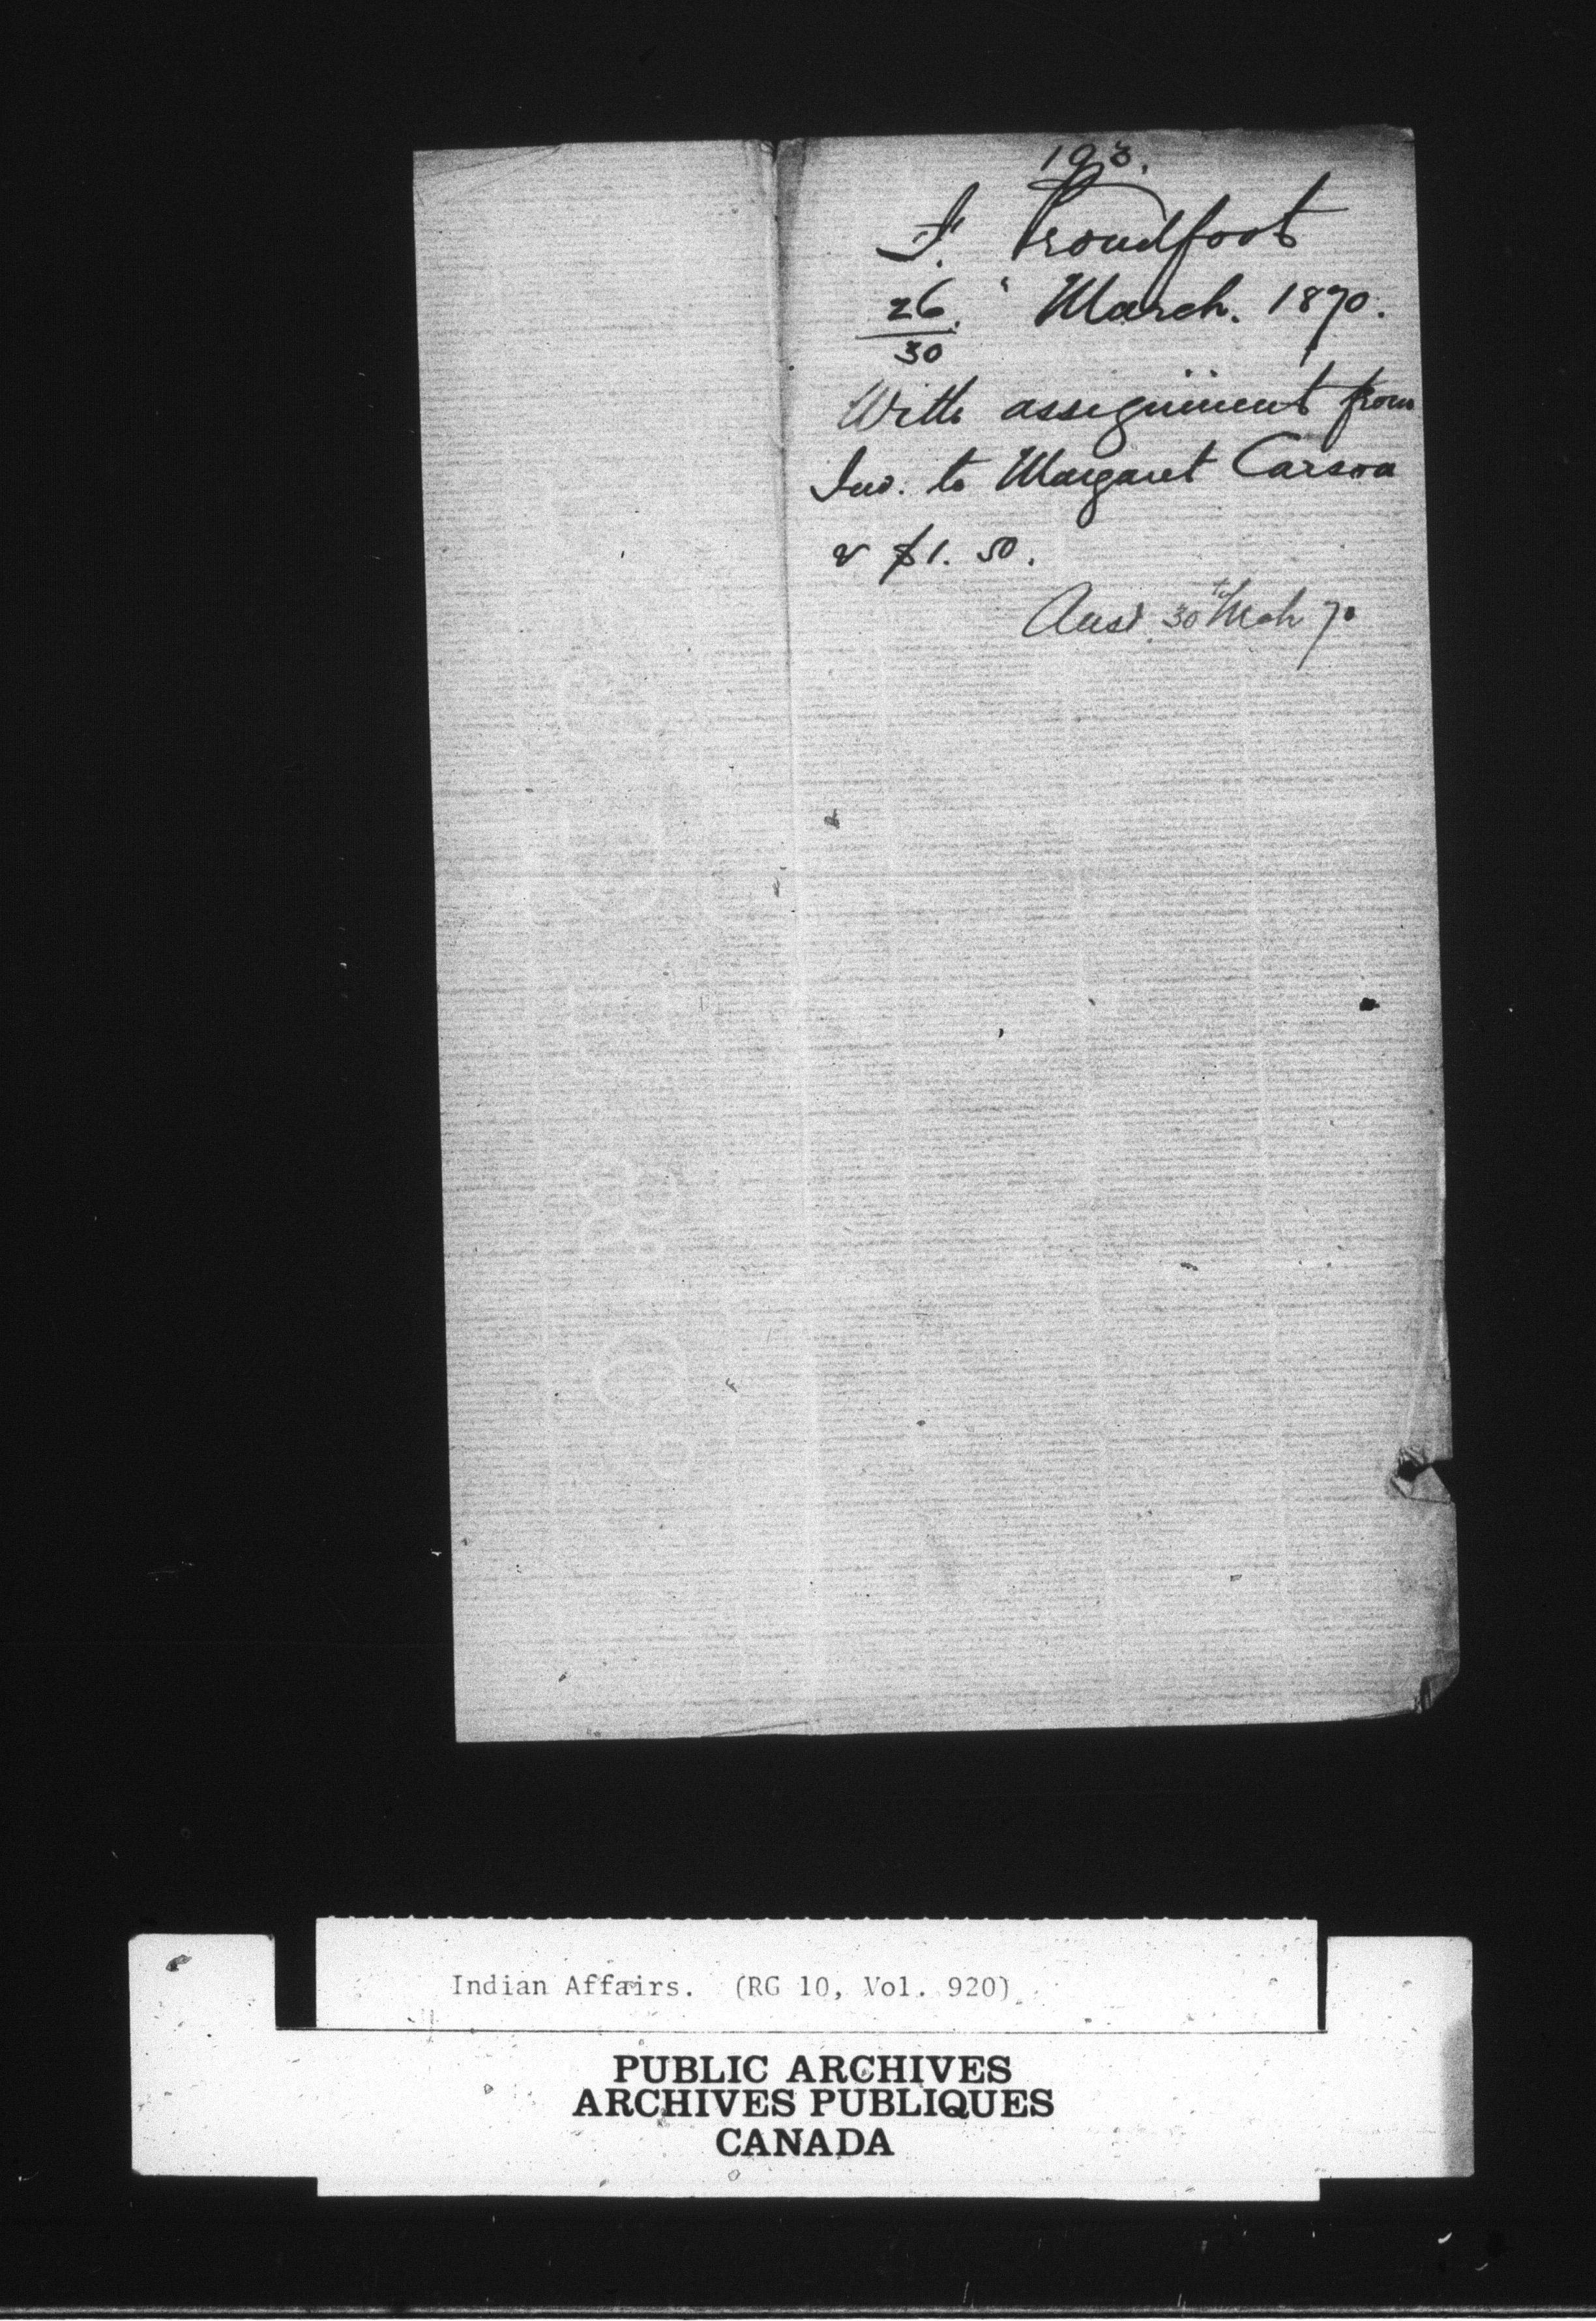 193.
F. Proudfoot
26 March. 1870.
30
With assignment from
Jno. to Margaret Carson
& $1.50.
Ansd. 30th Mch 70
Indian Affairs. (RG 10, Vol. 920)
PUBLIC ARCHIVES
ARCHIVES PUBLIQUES
CANADA